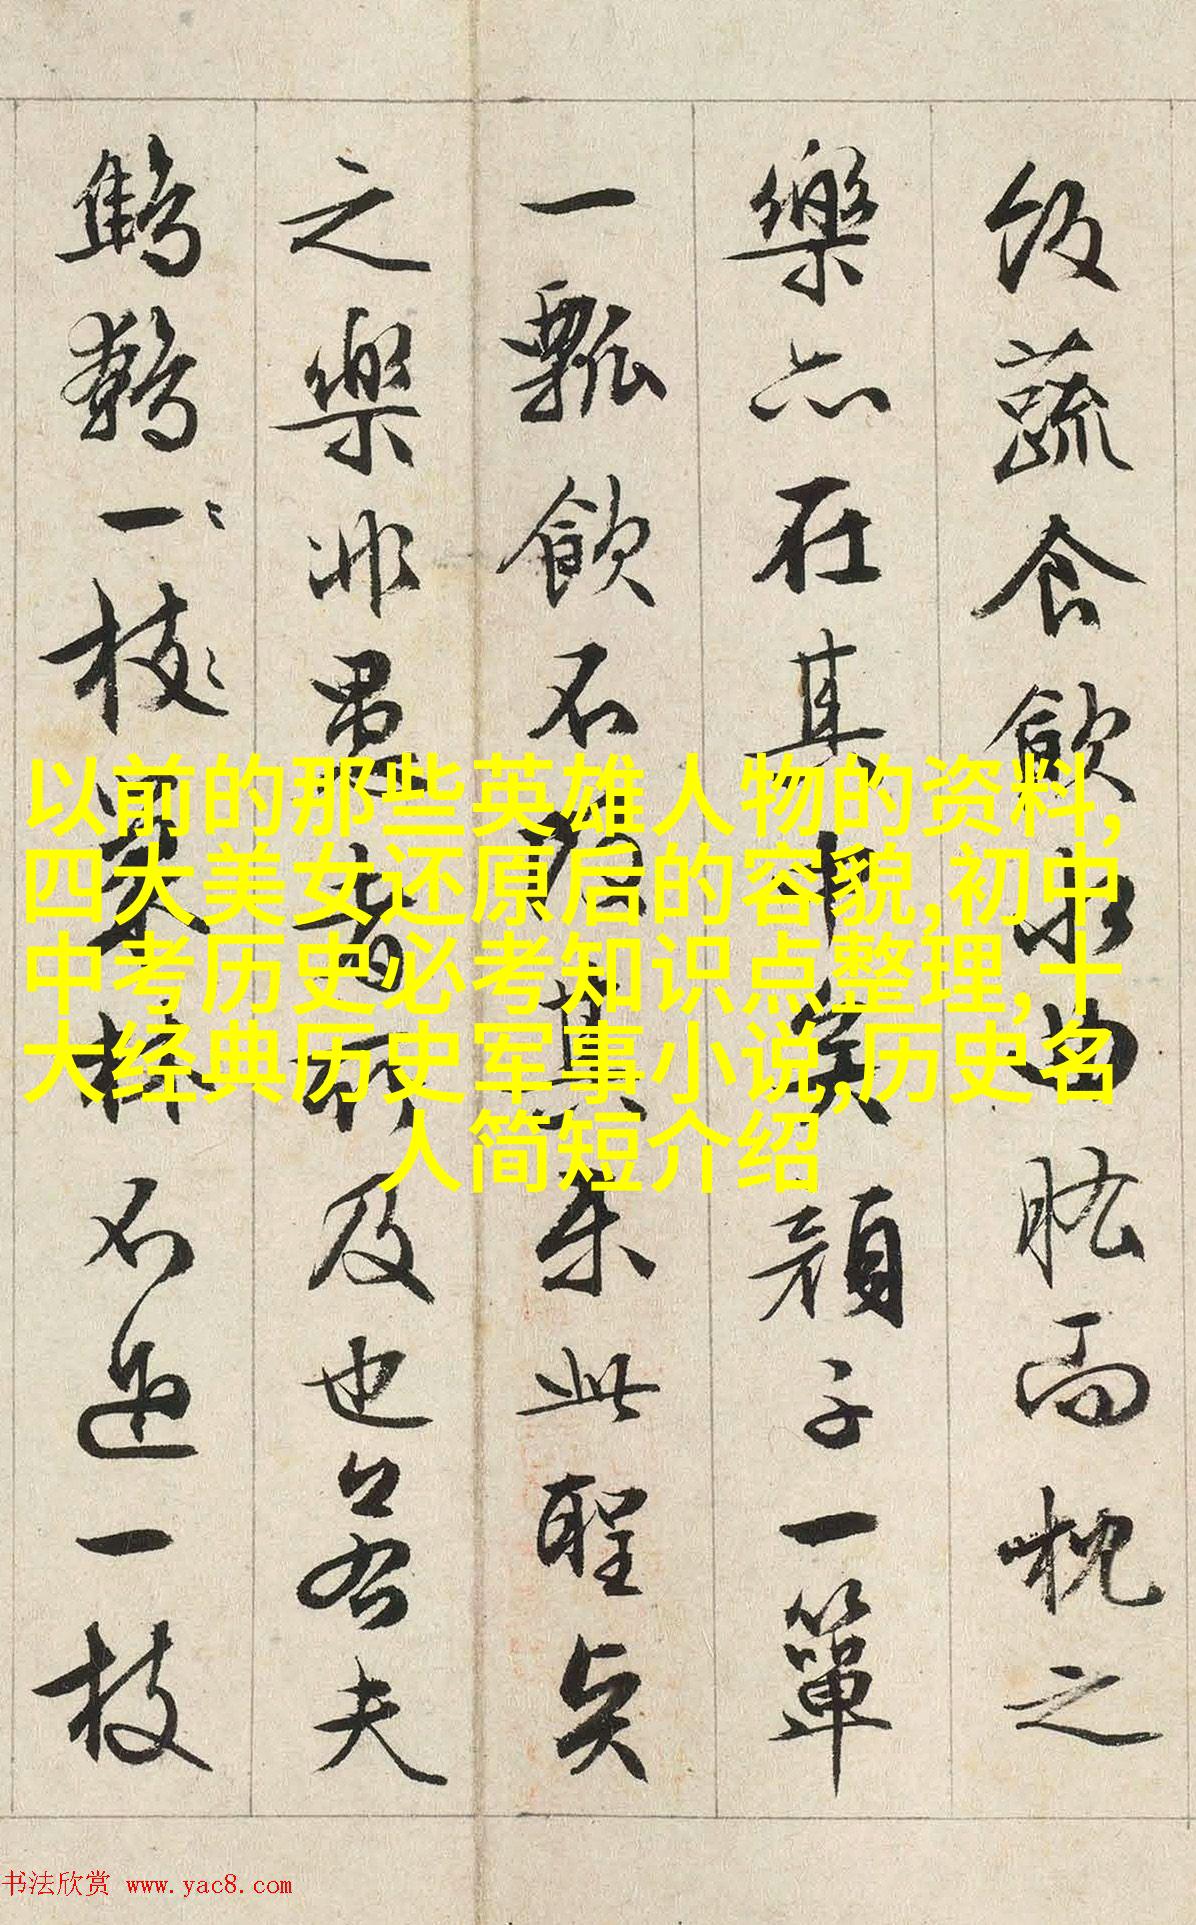 飯蔬食飲水曲肱而枕之
樂亦在其中矣顏子一簞
一瓢飲不改其樂此聖賢
之樂非愚者所及也若夫
鷦鷯一枝巢林不過一枝
以前的那些英雄人物的资料,
四大美女还原后的容貌,初中
中考历史必考知识点整理,十
大经典历史军事小说,历史名
人简短介绍
书法欣赏 www.yac8.com